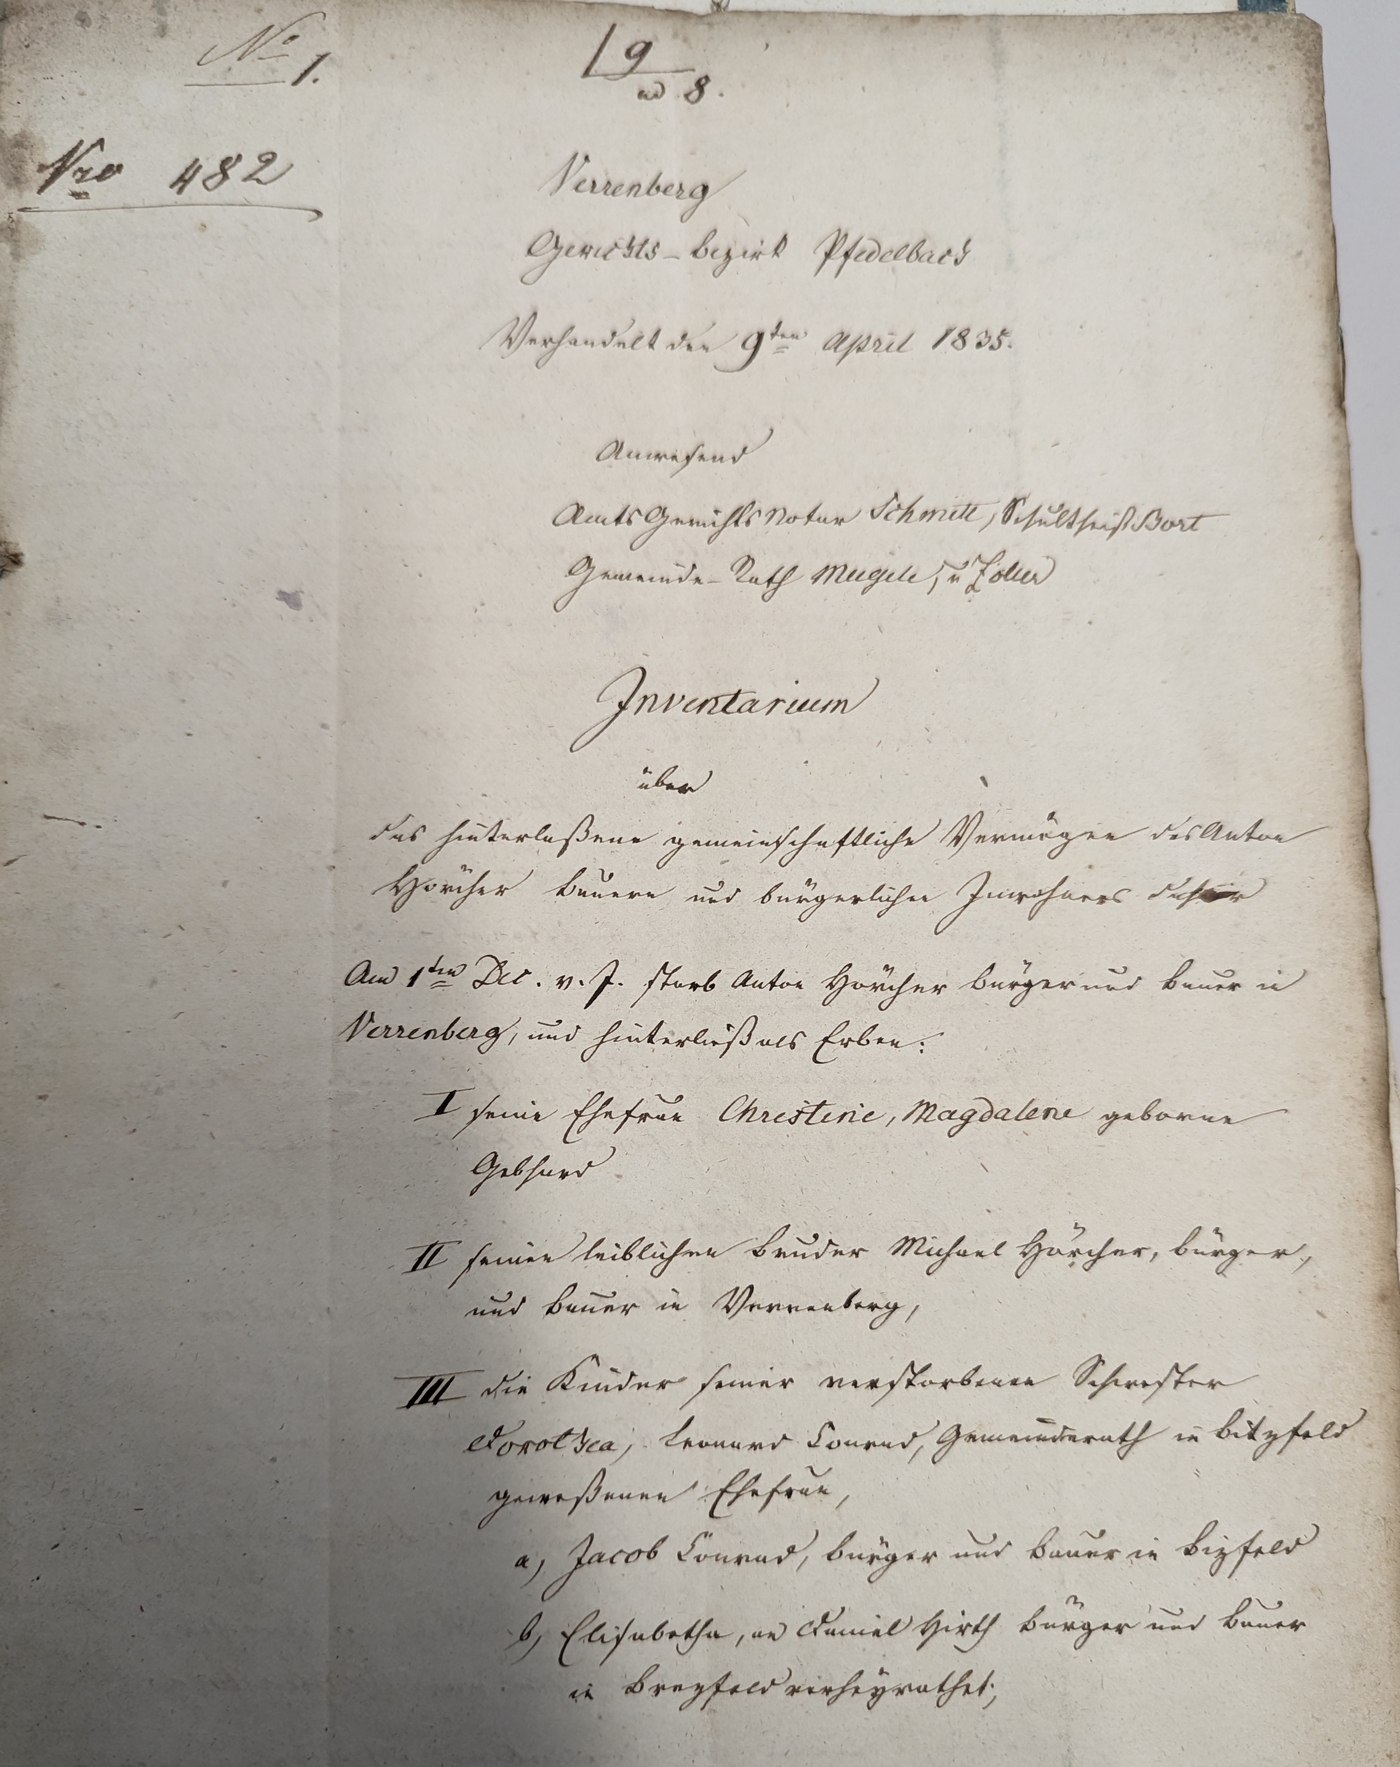 No 1.
19
ad 8.
Nro 482
Verrenberg
Gerichts-bezirk Pfedelbach
Verhandelt den 9ten April 1835.
Anwesend
AmtsGerichtsNotar Schmitt, Schultheiß Bort
Gemeinde-Rath Meigele, u Zoller
Inventarium
über
das hinterlaßene gemeinschaftliche Vermögen des Anton
Hörcher Bauern und bürgerlichen Inwohners dahier
Am 1ten Dec. v. J. starb Anton Hörcher bürger und Bauer in
Verrenberg, und hinterließ als Erben:
I seine Ehefrau Christine, Magdalene geborne
Gebhard
II seinen leiblichen Bruder Michael Hörcher, bürger,
und Bauer in Verrenberg,
III die Kinder seiner verstorbenen Schwester
Dorothea, Leonard Conrad, Gemeinderath in Bitzfeld
geweßenen Ehefrau,
a, Jacob Conrad, bürger und Bauer in Bizfeld
b, Elisabetha, an Daniel Hirth Bürger und Bauer
in Brezfeld verheyrathet;